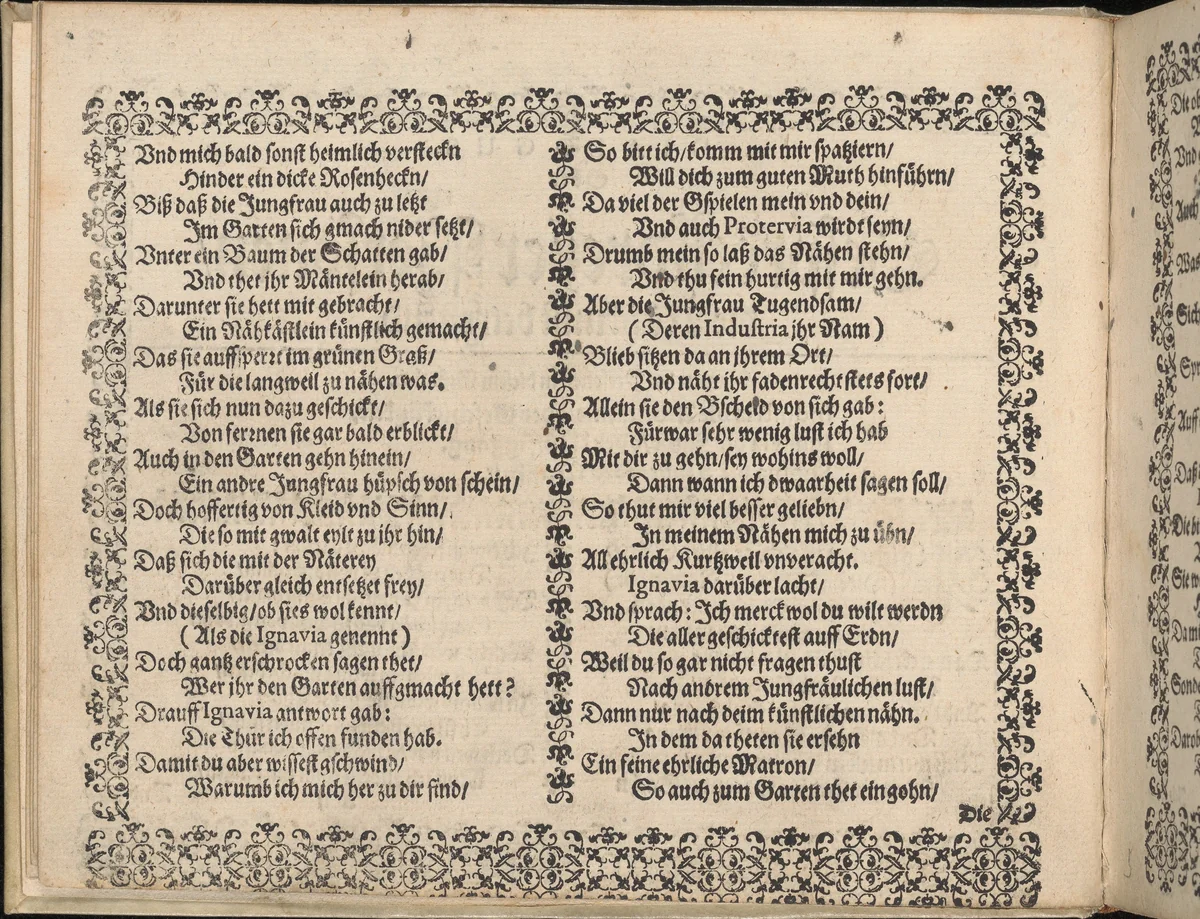 Vnd mich bald sonst heimlich versteckn
Hinder ein dicke Rosenheckn/
Biß daß die Jungfrau auch zu letzt
Im Garten sich gmach nider setzt/
Vnter ein Baum der Schatten gab/
Vnd thet jhr Mäntelein herab/
Darunter sie hett mit gebracht/
Ein Nähkästlein künstlich gemacht/
Das sie auffsperrt im grünen Graß/
Für die langweil zu nähen was.
Als sie sich nun dazu geschickt/
Von ferrnen sie gar bald erblickt/
Auch in den Garten gehn hinein/
Ein andre Jungfrau hüpsch von schein/
Doch hoffertig von Kleid vnd Sinn/
Die so mit gwalt eylt zu jhr hin/
Daß sich die mit der Näterey
Darüber gleich entsetzet frey/
Vnd dieselbig/ob sies wol kennt/
(Als die Ignavia genennt)
Doch gantz erschrocken sagen thet/
Wer jhr den Garten auffgmacht hett?
Drauff Ignavia antwort gab:
Die Thür ich offen funden hab.
Damit du aber wissest gschwind/
Warumb ich mich her zu dir find/
So bitt ich/komm mit mir spatziern/
Will dich zum guten Muth hinführn/
Da viel der Gspielen mein vnd dein/
Vnd auch Protervia wirdt seyn/
Drumb mein so laß das Nähen stehn/
Vnd thu fein hurtig mit mir gehn.
Aber die Jungfrau Tugendsam/
(Deren Industria jhr Nam)
Blieb sitzen da an jhrem Ort/
Vnd näht jhr fadenrecht stets fort/
Allein sie den Bscheid von sich gab:
Fürwar sehr wenig lust ich hab
Mit dir zu gehn/sey wohins woll/
Dann wann ich dwaarheit sagen soll/
So thut mir viel besser geliebn/
In meinem Nähen mich zu übn/
All ehrlich Kurtzweil vnveracht.
Ignavia darüber lacht/
Vnd sprach: Ich merck wol du wilt werdn
Die aller geschicktest auff Erdn/
Weil du so gar nicht fragen thust
Nach andrem Jungfräulichen lust/
Dann nur nach deim künstlichen nähn.
In dem da theten sie ersehn
Ein feine ehrliche Matron/
So auch zum Garten thet eingohn/
Die